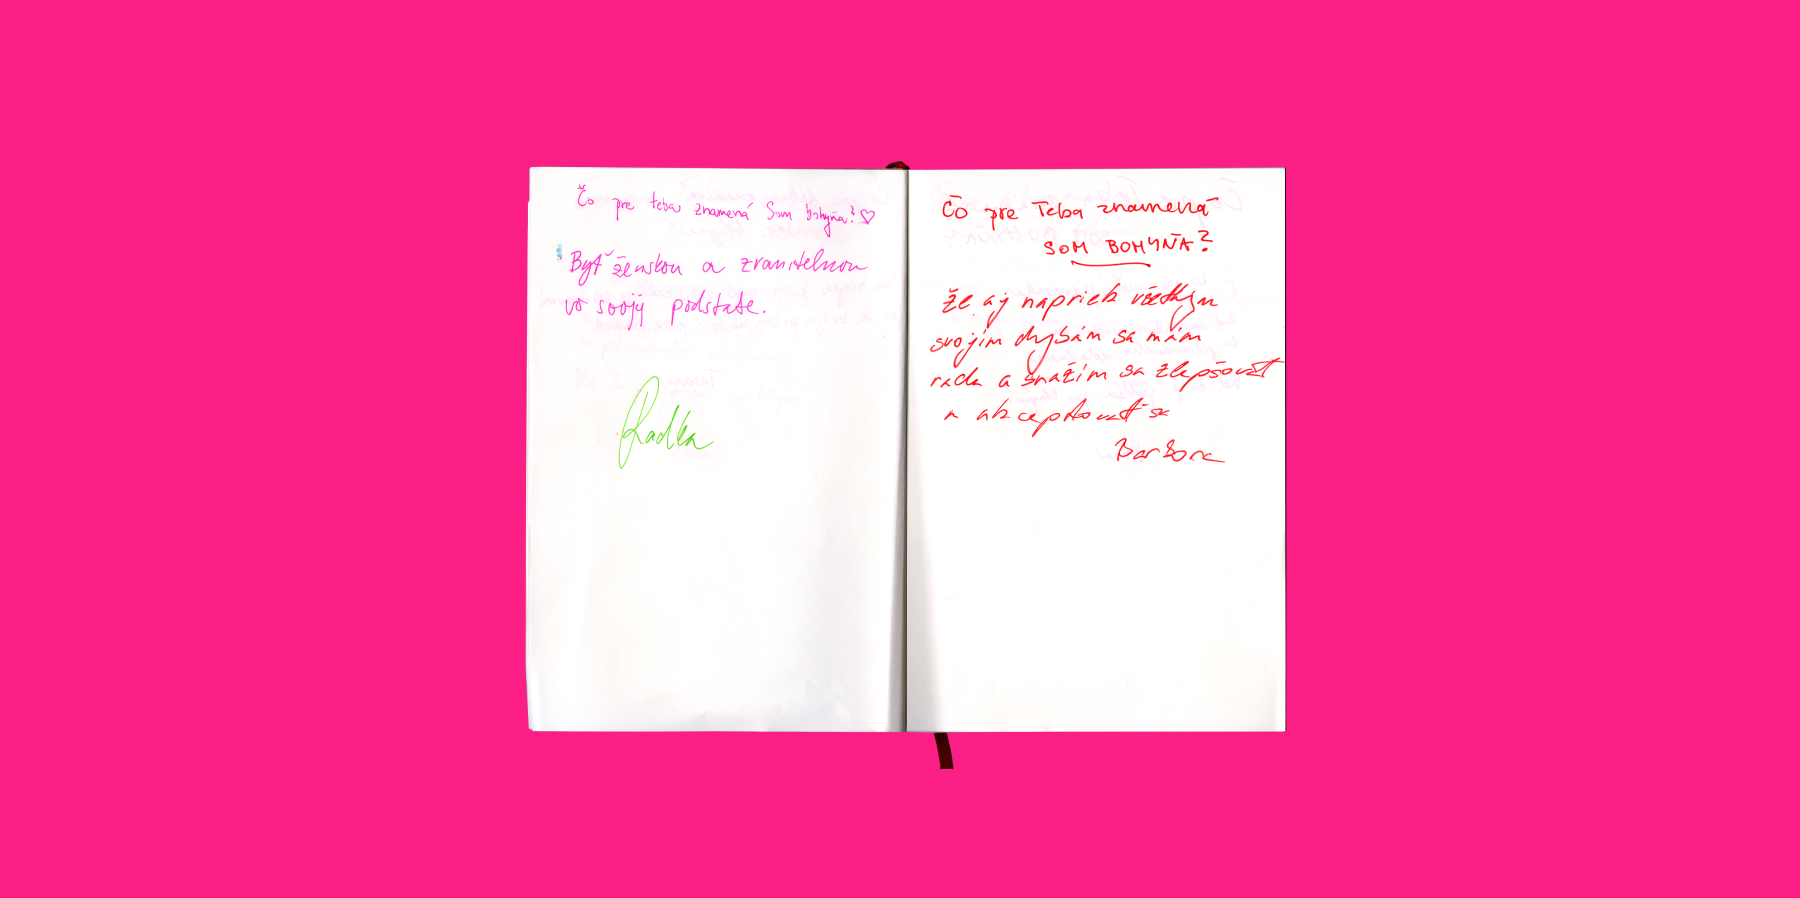 Čo pre teba znamená Som bohyňa? ♡
Byť ženskou a zraniteľnou
vo svojij podstate.
Radka
Čo pre Teba znamená
SOM BOHYŇA?
Že aj napriek všetkým
svojím chybám sa mám
rada a snažím sa zlepšovať
a akceptovať sa
Barbora